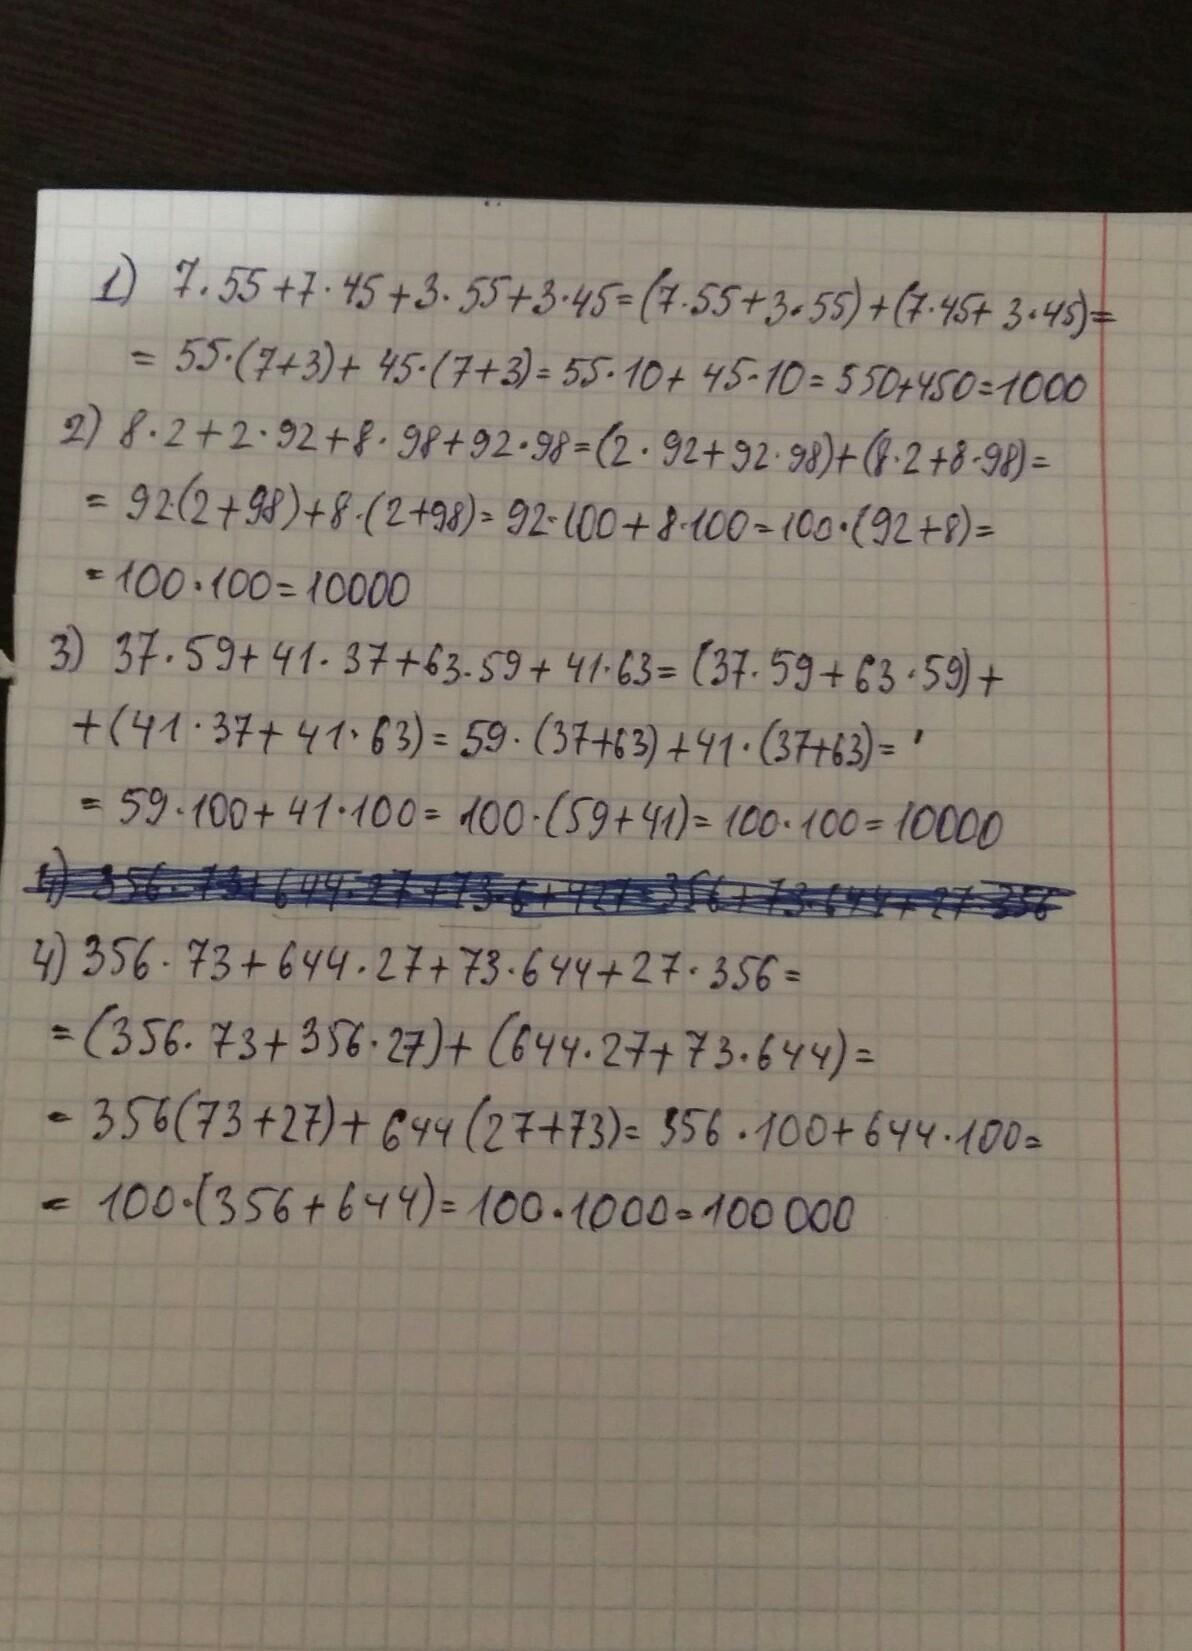 1) 7·55+7·45+3·55+3·45=(7·55+3·55)+(7·45+3·45)=
=55·(7+3)+45·(7+3)=55·10+45·10=550+450=1000
2) 8·2+2·92+8·98+92·98=(2·92+92·98)+(8·2+8·98)=
=92(2+98)+8·(2+98)=92·100+8·100=100·(92+8)=
=100·100=10000
3) 37·59+41·37+63·59+41·63=(37·59+63·59)+
+(41·37+41·63)=59·(37+63)+41·(37+63)=
=59·100+41·100=100·(59+41)=100·100=10000
4) 356·73+644·27+73·644+27·356=
=(356·73+356·27)+(644·27+73·644)=
=356(73+27)+644(27+73)=356·100+644·100=
=100·(356+644)=100·1000=100 000